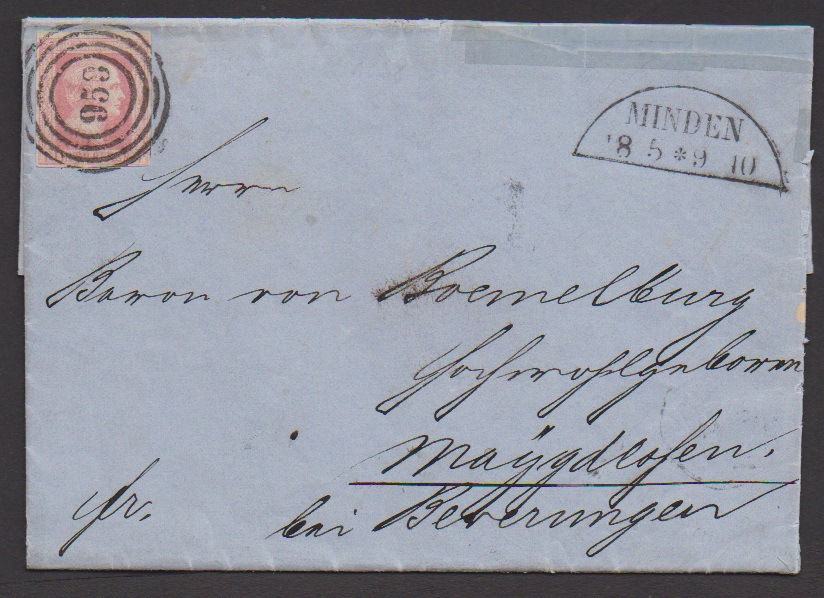 958
MINDEN
18 5 * 9 10
Herrn
Baron von Boemelburg
Hochwohlgeboren
Maÿgdlosen.
fr.
bei Beverungen